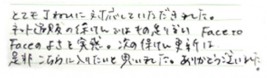 とても丁ねいに対応していただきました。
ネット通販の保けんとはもの足りない Face to
Faceのよさを実感。次の保けん更新は
是非こちらに入りたいと思いました。ありがとうございました